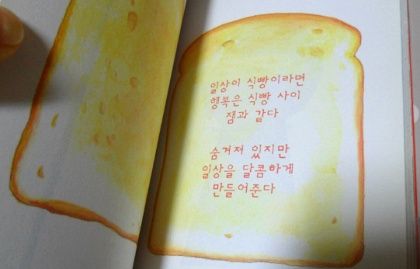 일상이 식빵이라면
행복은 식빵 사이
잼과 같다
숨겨져 있지만
일상을 달콤하게
만들어준다